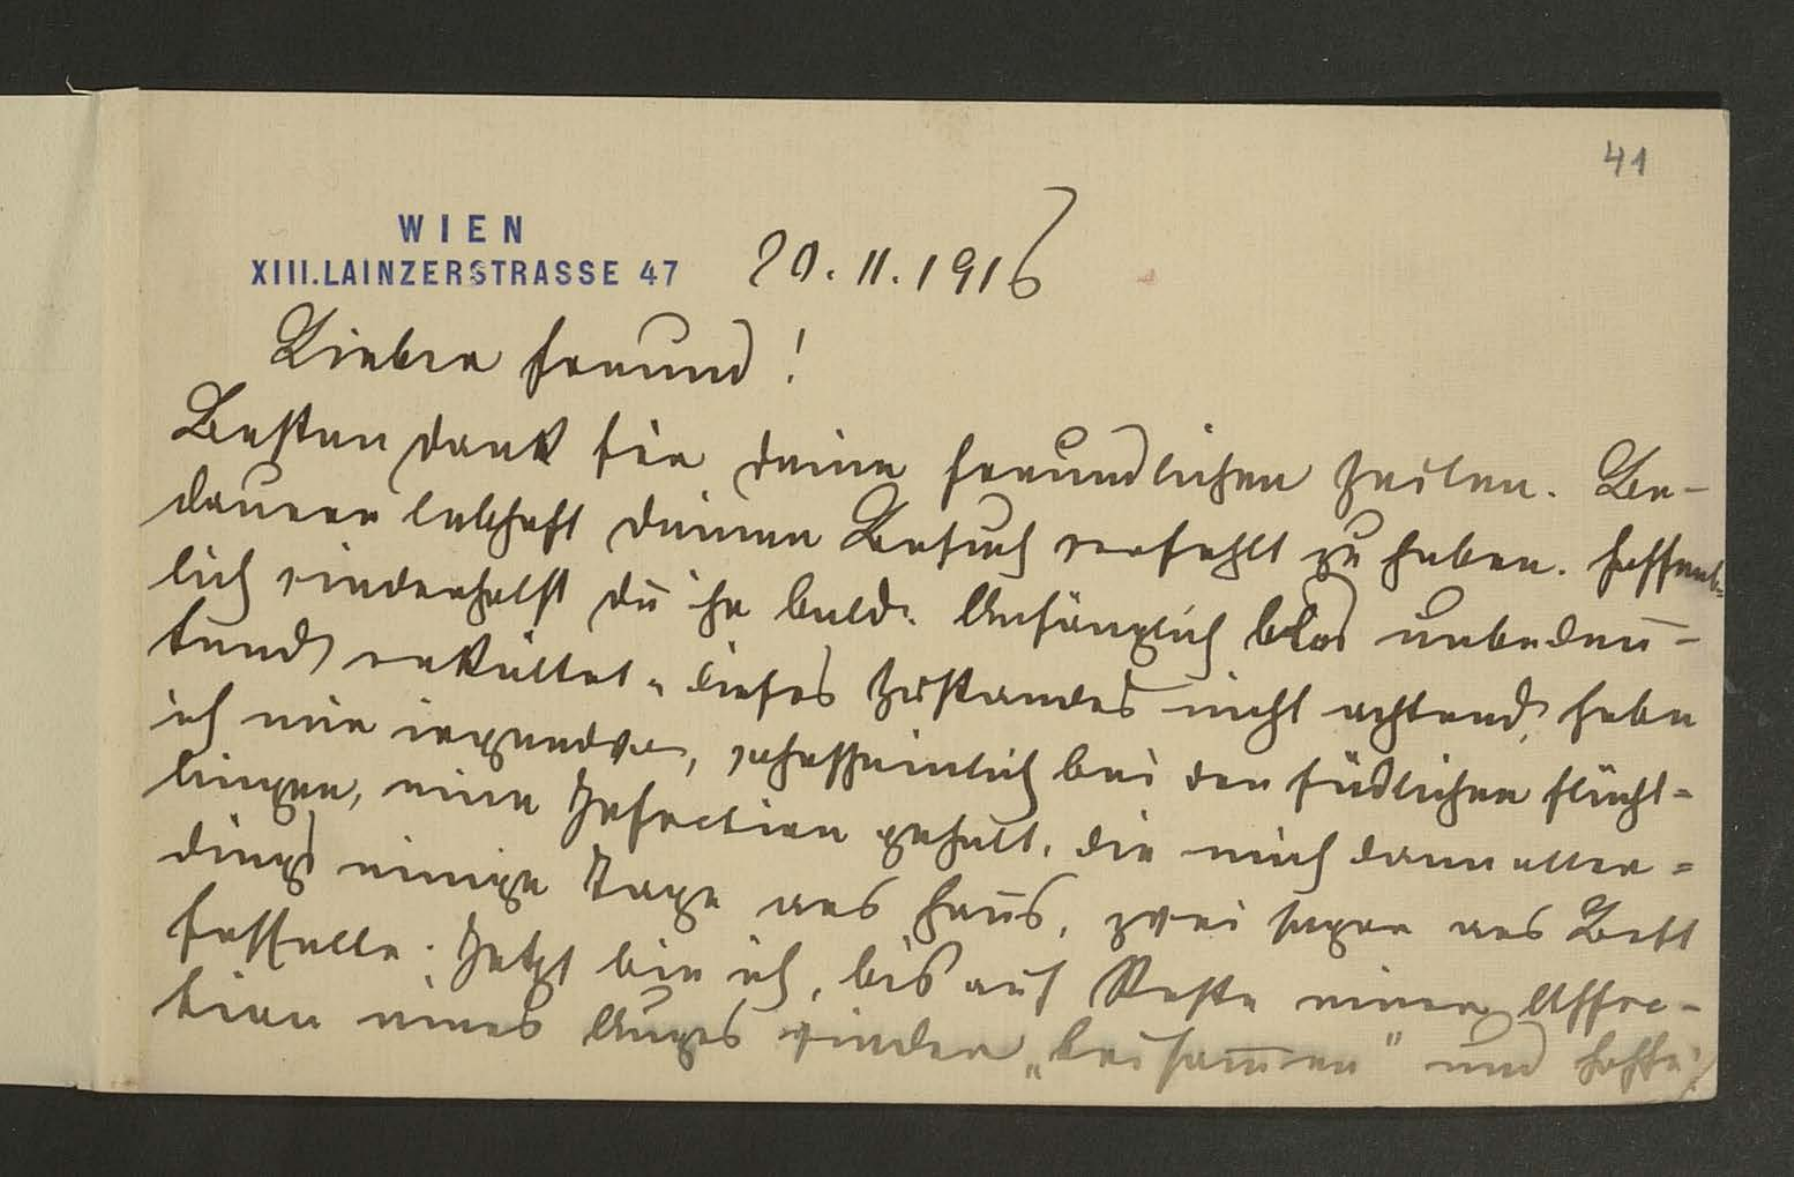 41
WIEN
XIII. LAINZERSTRASSE 47 20.11.1916
Lieber Freund!
Besten Dank für deine freundlichen Zeilen. Be-
dauere lebhaft deinen Besuch verfehlt zu haben. Hoffent-
lich wiederholst du ihn bald. Anfänglich blos unbedeu-
tend erkältet, dieses Zustandes nicht achtend, habe
ich mir irgendwo, wahrscheinlich bei den südlichen Flücht-
lingen, eine Infection geholt, die mich dann aller-
dings einige Tage ans Haus, zwei sogar ans Bett
fesselte. Jetzt bin ich, bis auf Reste einer Affec-
tion eines Auges wieder „beisammen" und hoffe